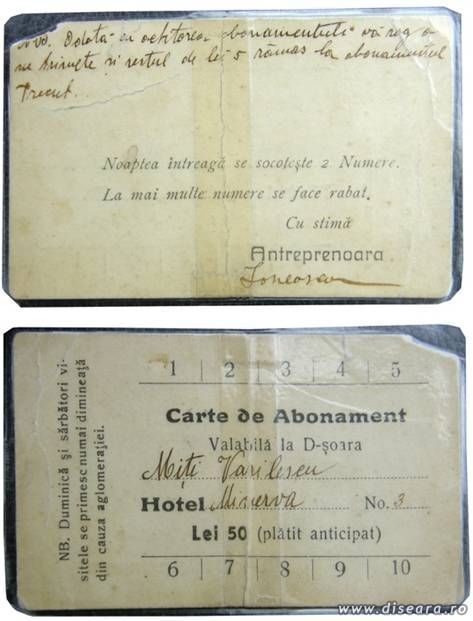 Odată cu achitarea abonamentului vă rog a
ne trimete și restul de lei 5 rămas la abonamentul
trecut.
Noaptea întreagă se socotește 2 Numere.
La mai multe numere se face rabat.
Cu stimă
Antreprenoara
Ionescu
NB. Duminică și sărbători vi-
sitele se primesc numai dimineață
din cauza aglomerației.
1 | 2 | 3 | 4 | 5
Carte de Abonament
Valabilă la D-șoara
Miți Vasilescu
Hotel Minerva No. 3
Lei 50 (plătit anticipat)
6 | 7 | 8 | 9 | 10
www.diseara.ro